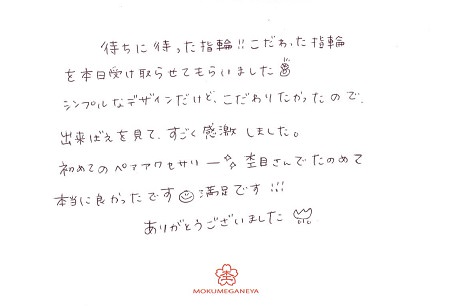 待ちに待った指輪!!こだわった指輪
を本日受け取らせてもらいました
シンプルなデザインだけど、こだわりたかったので、
出来ばえを見て、すごく感激しました。
初めてのペアアクセサリー☆☆杢目さんでたのめて
本当に良かったです☺満足です!!!
ありがとうございました
MOKUMEGANEYA